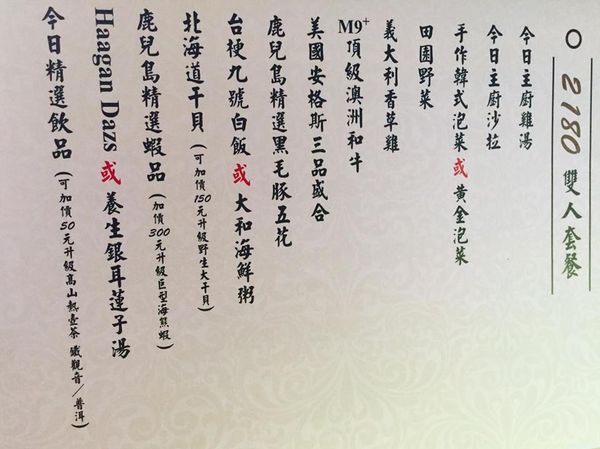 ○ 2180 雙人套餐
今日主廚雞湯
今日主廚沙拉
手作韓式泡菜或黃金泡菜
田園野菜
義大利香草雞
M9+頂級澳洲和牛
美國安格斯三品盛合
鹿兒島精選黑毛豚五花
台梗九號白飯或大和海鮮粥
北海道干貝(可加價150元升級野生大干貝)
鹿兒島精選蝦品(加價300元升級巨型海熊蝦)
Haagan Dazs 或養生銀耳蓮子湯
今日精選飲品(可加價50元升級高山熱壺茶 鐵觀音/普洱)